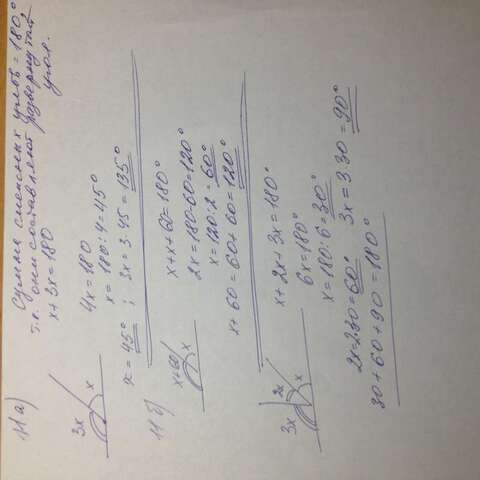 11 а)
Сумма смежных углов = 180°
т.к. они составляют развернутый
угол.
x + 3x = 180
3x
x
4x = 180
x = 180 : 4 = 45°
x = 45° ; 3x = 3·45 = 135°
11 б)
x+60
x
x + x + 60 = 180°
2x = 180 - 60 = 120°
x = 120 : 2 = 60°
x + 60 = 60 + 60 = 120°
)
3x
2x
x
x + 2x + 3x = 180°
6x = 180°
x = 180 : 6 = 30°
2x = 2·30 = 60°
3x = 3·30 = 90°
30 + 60 + 90 = 180°